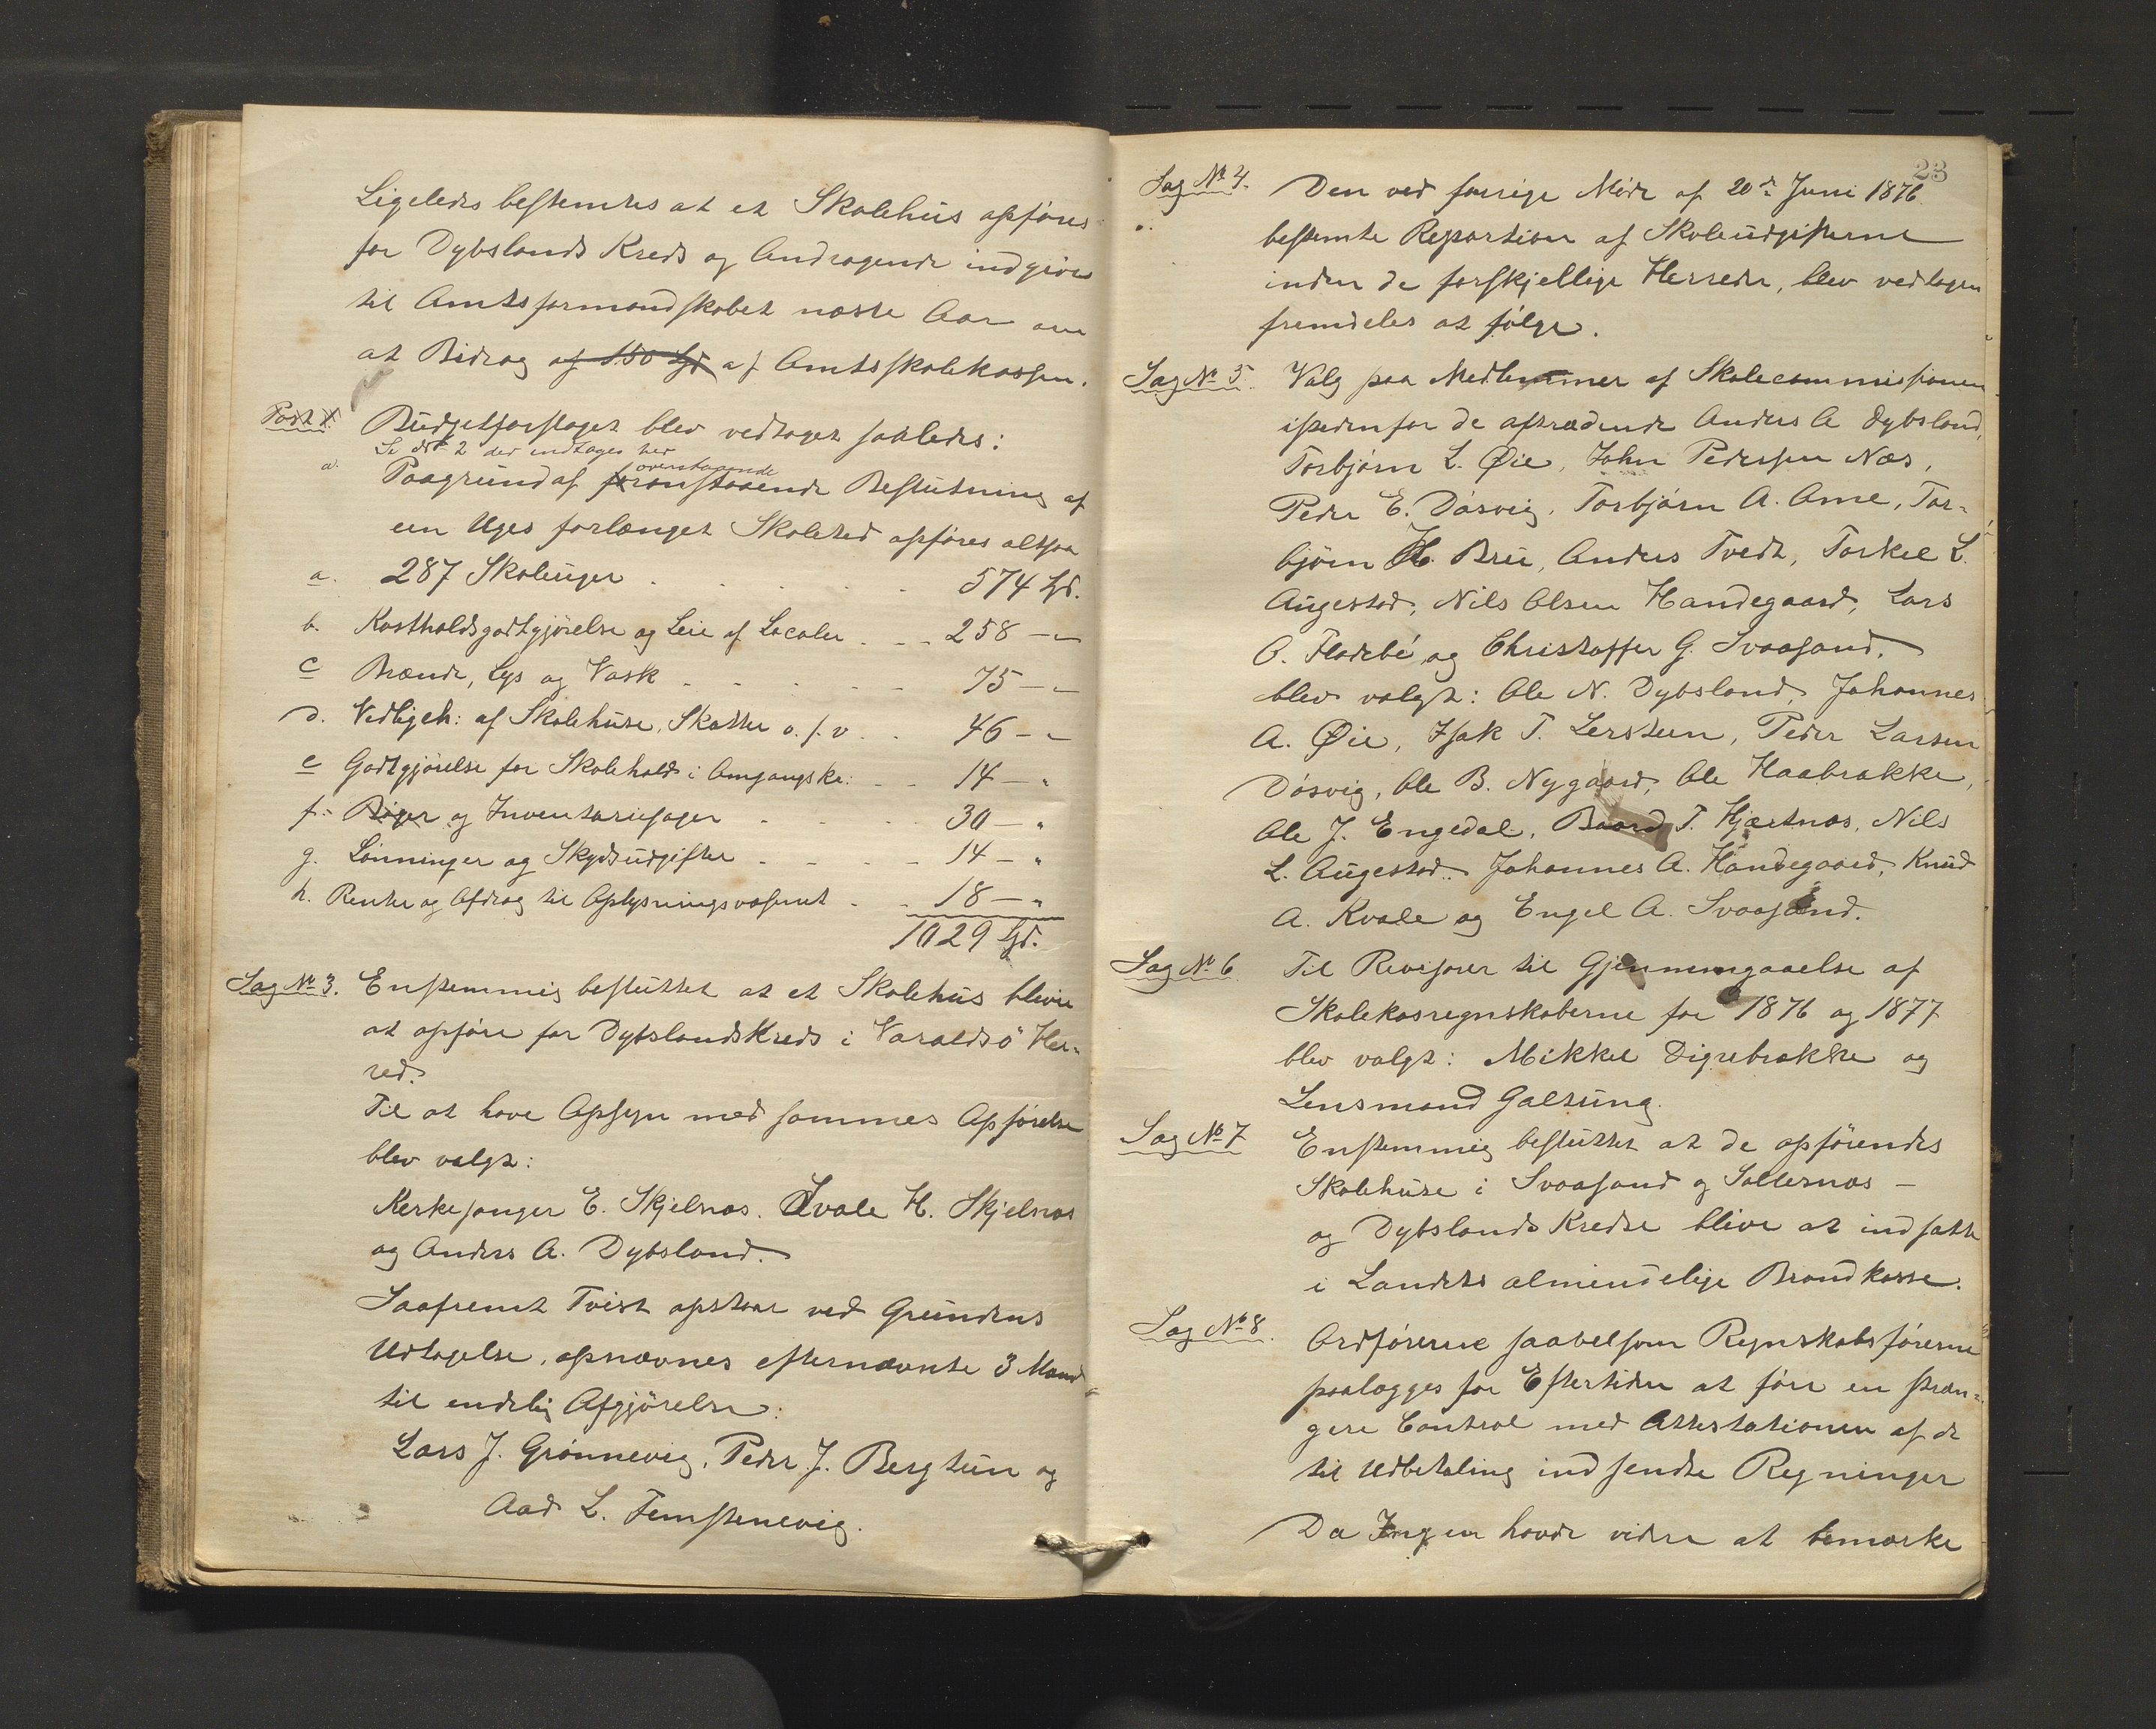 Ligeledes bestemtes at et Skolehus opføres
for Dybslands Kreds og Andragende indgives
til Amtsformandskabet næste Aar om
at Bidrag af 150 Spd af Amtsskolekassen.
Post 1. Budgetforslaget blev vedtaget saaledes:
Se No 2 der indtages her
overstaaende
a. Paagrund af foranstaaende Beslutning af
een Uges forlænget Skoletid opføres altsaa
a. 287 Skoleuger . . . . . 574 Spd.
b. Kostholdsgodtgjørelse og Leie af Localer . - - 258 - "
c Brænde, Lys og Vask - - - - - - 75 - "
d. Vedligeh: af Skolehuse, Skatter o. s. v. . . 46 - "
e Godtgjørelse for Skolehold i Omgangskr: - - 14 - "
f. Bøger og Inventariesager . . . . 30 - "
g. Lønninger og Skydsudgifter - - - - 14 - "
h. Renter og Afdrag til Oplysningsvæsenet - - 18 - "
1029 Spd.
Sag No 3. Enstemmig besluttet at et Skolehus bliver
at opføre for Dybslands Kreds i Varaldsø Her-
red.
Til at have Opsyn med sammes Opførelse
blev valgt:
Kerkesanger E. Skjelnæs. Ivale H. Skjelnæs
og Anders A. Dybsland.
Saafremt Tvist opstaar ved Grundens
Udtagelse, opnævnes efternævnte 3 Mænd
til endelig Afgjørelse:
Lars J. Grønnevig, Peder J. Bergtun og
Aad L. Femstenevig.
23
Sag No 4. Den ved forrige Møde af 20de Juni 1876
bestemte Repartion af Skoleudgifterne
inden de forskjellige Herreder, blev vedtagen
fremdeles at følge.
Sag No 5. Valg paa Medlemmer af Skolecommissionen
istedenfor de aftrædende Anders A Dybsland,
Torbjørn L. Øie, John Pedersen Næs,
Peder E. Døsvig, Torbjørn A. Ame, Tor-
bjørn H. Bru, Anders Tvedt, Torkel L.
Augestad, Nils Olsen Handegaard, Lars
O. Flodebø og Christoffer G. Svaasand.
blev valgt: Ole N. Dybsland, Johannes
A. Øie, Isak T. Lersteen, Peder Larsen
Døsvig, Ole B. Nygaard, Ole Haabrække,
Ole J. Engedal, Baard T. Hjertnæs, Nils
L. Augestad. Johannes A. Handegaard, Knud
A. Kvale og Engel A. Svaasand.
Sag No 6 Til Revisorer til Gjennemgaaelse af
Skolekasregnskaberne for 1876 og 1877
blev valgt: Mikkel Digrebrække og
Lensmand Galtung.
Sag No 7 Enstemmig besluttet at de opførendes
Skolehuse i Svaasand og Sollesnæs -
og Dybslands Kredse blive at indsætte
i Landets almindelige Brandkasse.
Sag No 8. Ordførerne saavelsom Regnskabsførerne
paalægges for Eftertiden at føre en stræn-
gere Control med Attestationen af de
til Udbetaling indsendte Regninger
Da Ingen havde videre at bemærke